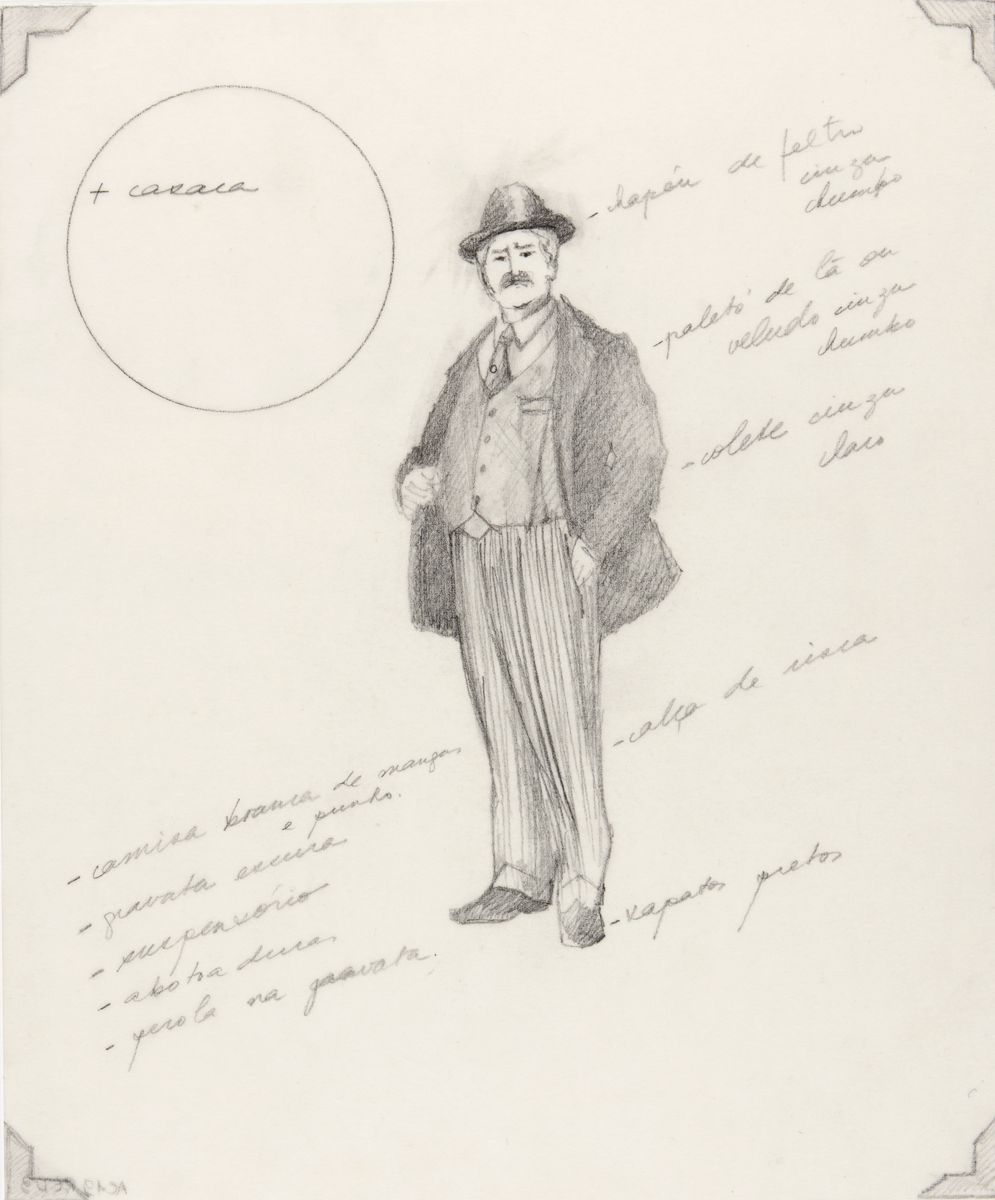 + casaca
- chapéu de feltro
cinza
chumbo
- paletó de lã ou
veludo cinza
chumbo
- colete cinza
claro
- calça de risca
- camisa branca de mangas
e punho.
- gravata escura
- suspensório
- abotoaduras
- perola na gravata.
- sapatos pretos